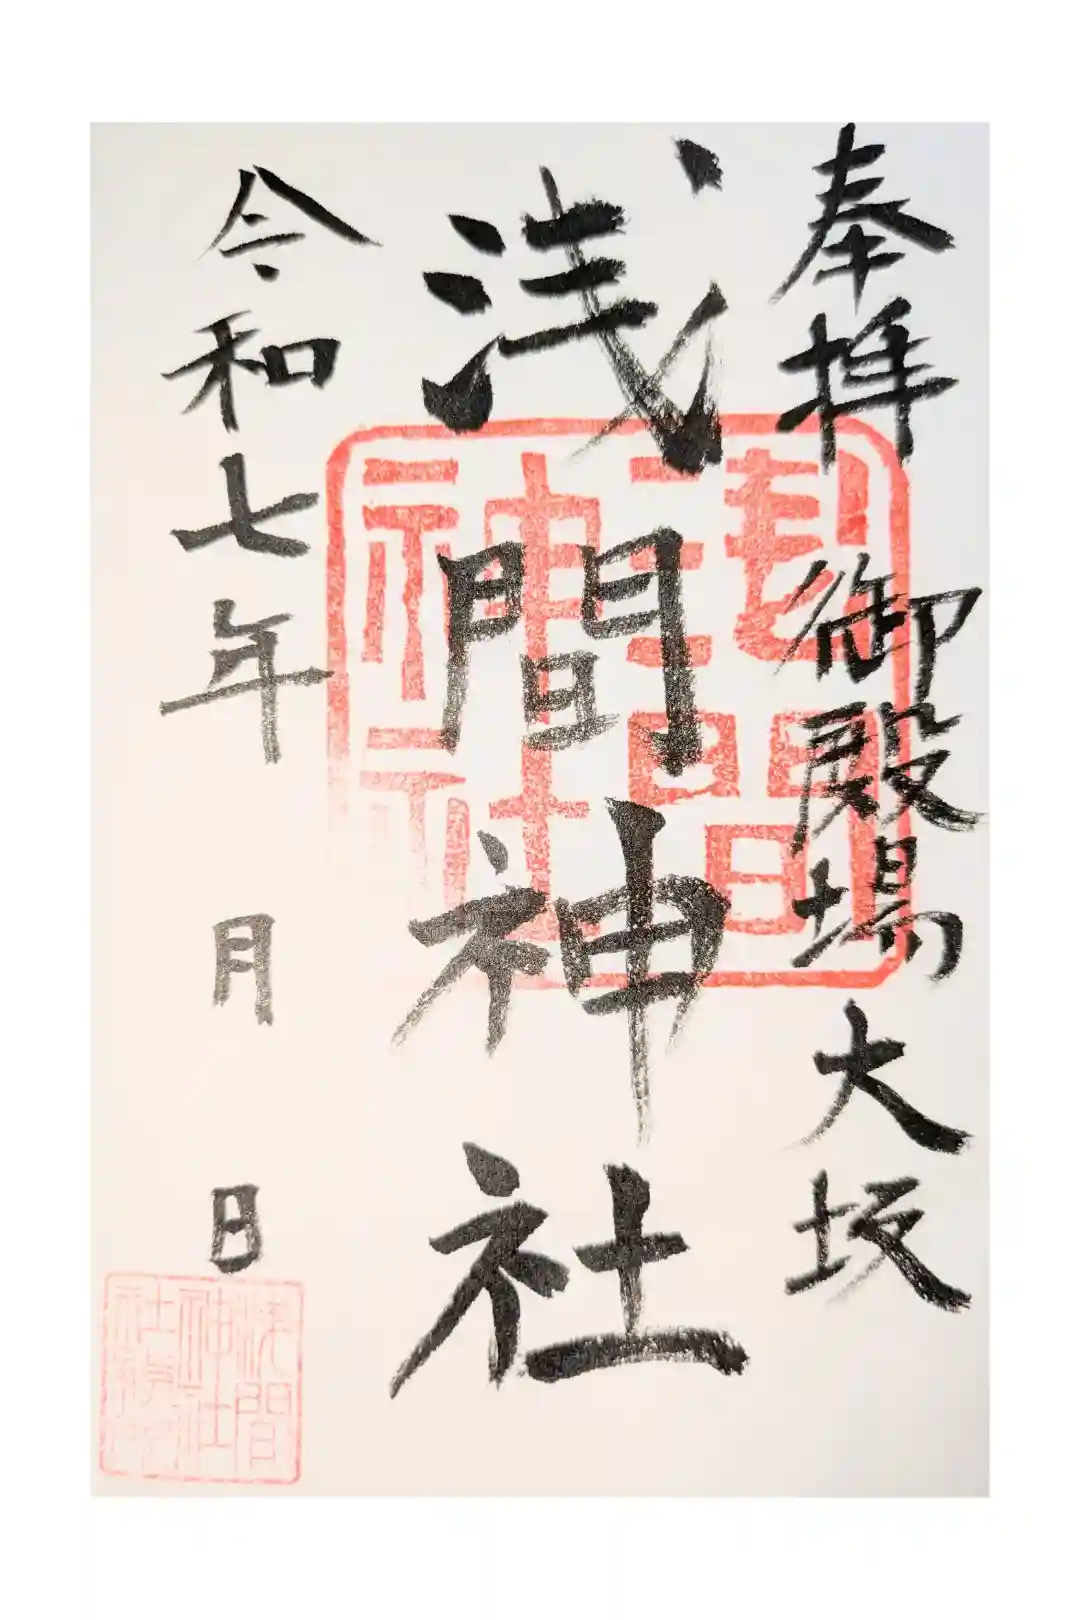 奉拝 御殿場 大坂
浅間神社
令和七年 月 日
浅間神社